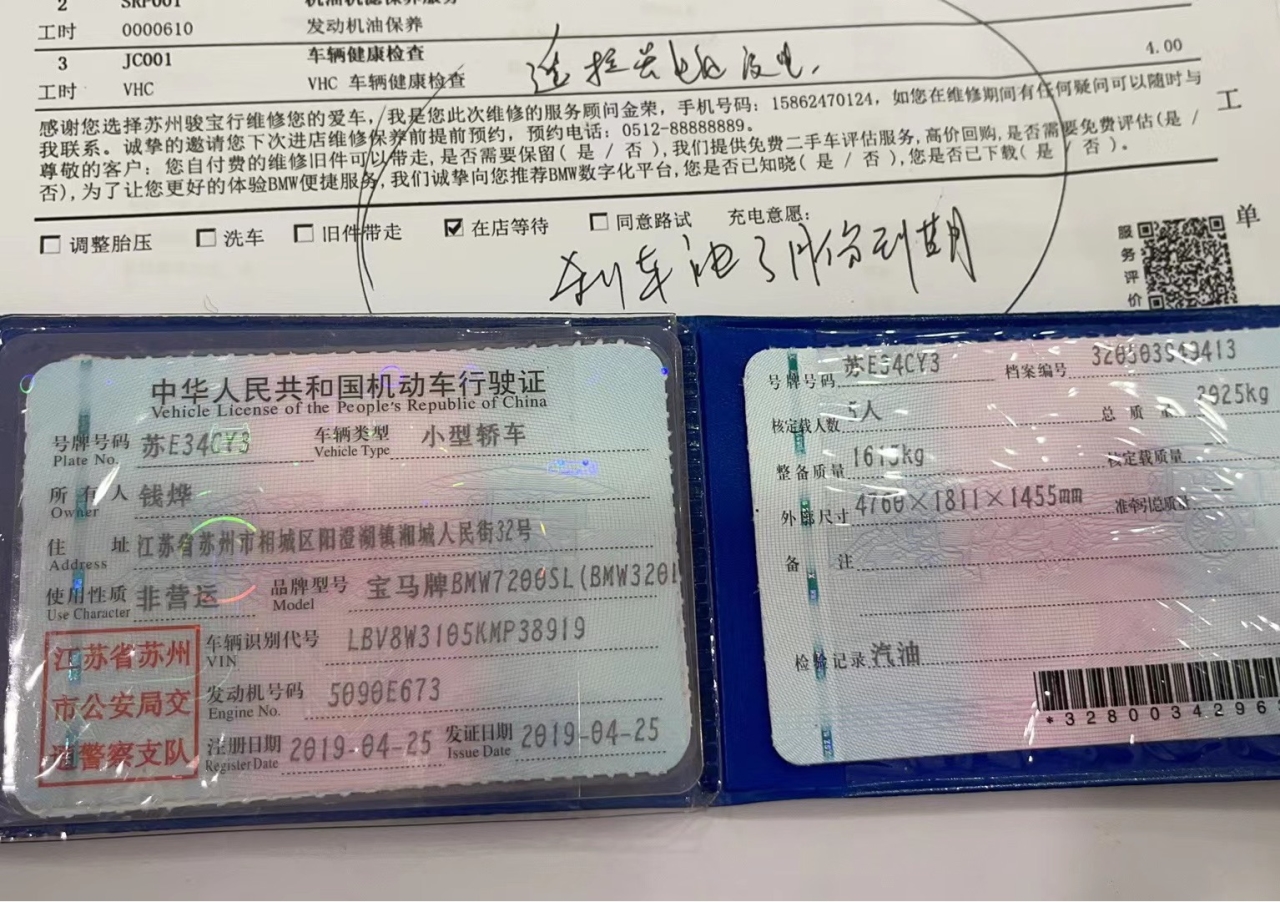 2 SRP001 机油机滤保养服务
工时 0000610 发动机油保养
3 JC001 车辆健康检查
工时 VHC VHC 车辆健康检查 4.00
遥控器电池没电.
感谢您选择苏州骏宝行维修您的爱车,我是您此次维修的服务顾问金荣,手机号码:15862470124,如您在维修期间有任何疑问可以随时与
我联系。诚挚的邀请您下次进店维修保养前提前预约,预约电话:0512-88888889。
尊敬的客户:您自付费的维修旧件可以带走,是否需要保留(是/否),我们提供免费二手车评估服务,高价回购,是否需要免费评估(是/
否),为了让您更好的体验BMW便捷服务,我们诚挚向您推荐BMW数字化平台,您是否已知晓(是/否),您是否已下载(是/否)。
工
单
调整胎压 洗车 旧件带走 在店等待 同意路试 充电意愿:
刹车油3月份到期
服务评价
中华人民共和国机动车行驶证
Vehicle License of the People's Republic of China
号牌号码 苏E34CY3 车辆类型 小型轿车
Plate No. Vehicle Type
所有人 钱烨
Owner
住址 江苏省苏州市相城区阳澄湖镇湘城人民街32号
Address
使用性质 非营运 品牌型号 宝马牌BMW7200SL(BMW320i
Use Character Model
江苏省苏州
市公安局交
通警察支队
车辆识别代号 LBV8W3105KMP38919
VIN
发动机号码 5090E673
Engine No.
注册日期 2019-04-25 发证日期 2019-04-25
Register Date Issue Date
号牌号码 苏E34CY3 档案编号 320503949413
核定载人数 5人 总质量 2025kg
整备质量 1615kg 核定载质量 --
外廓尺寸 4760×1811×1455mm 准牵引总质量 --
备注
检验记录 汽油
*3280034296